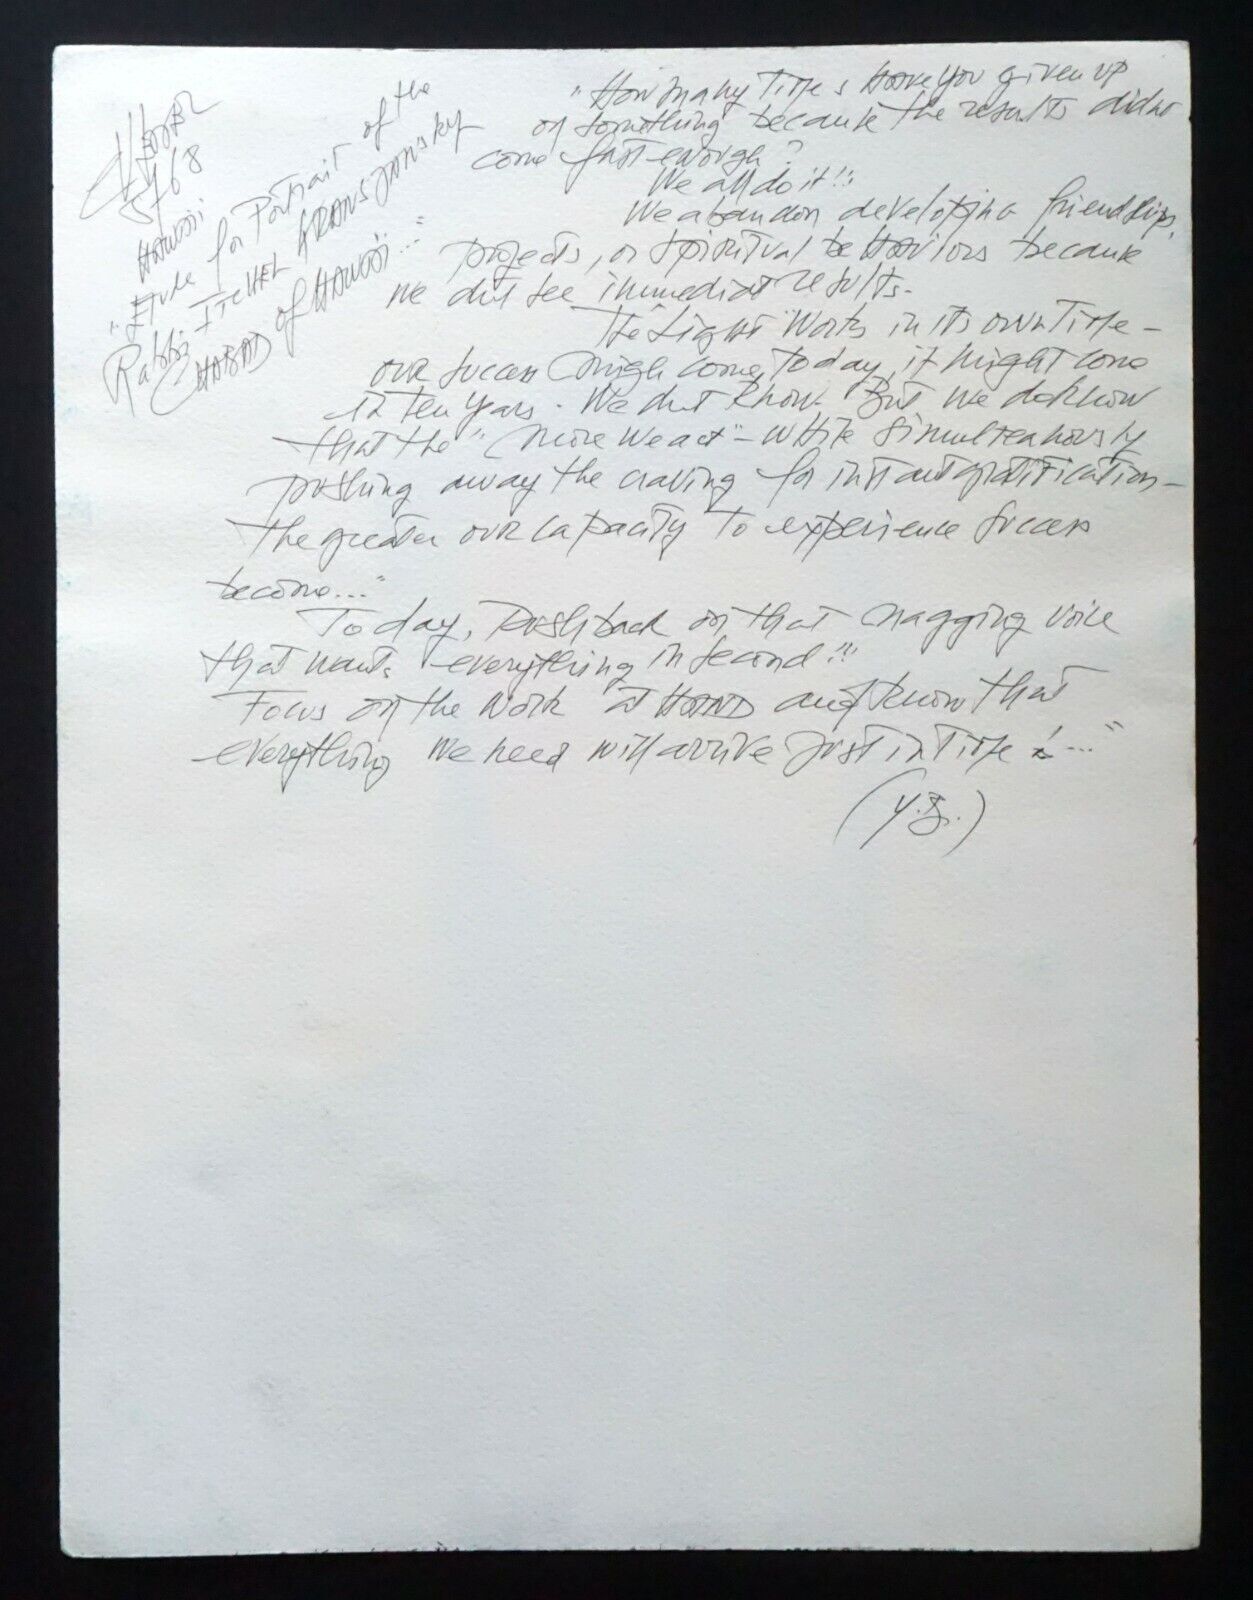 5768
HAWAII
"Etude for Portrait of the
Rabbi ITCHEL KRANSJANSKY
CHABAD of HAWAII..."
"How many Times Have you given up
on something because the results didn't
come fast enough?
We all do it!!
We abandon developing friendships,
projects, or spiritual beHAviors because
we dont see immediat results.
The Light Works in its own Time -
our success migh come today, it might come
in ten years. We dont know. But we do know
that the "more we act" - while simulteanously
pushing away the craving for instant gratification -
the greater our capacity to experience success
become..."
Today, push back on that nagging voice
that wants everything in second!!!
Focus on the work at HAND and know that
everything we need will arrive just in Time!..."
(Y.B.)